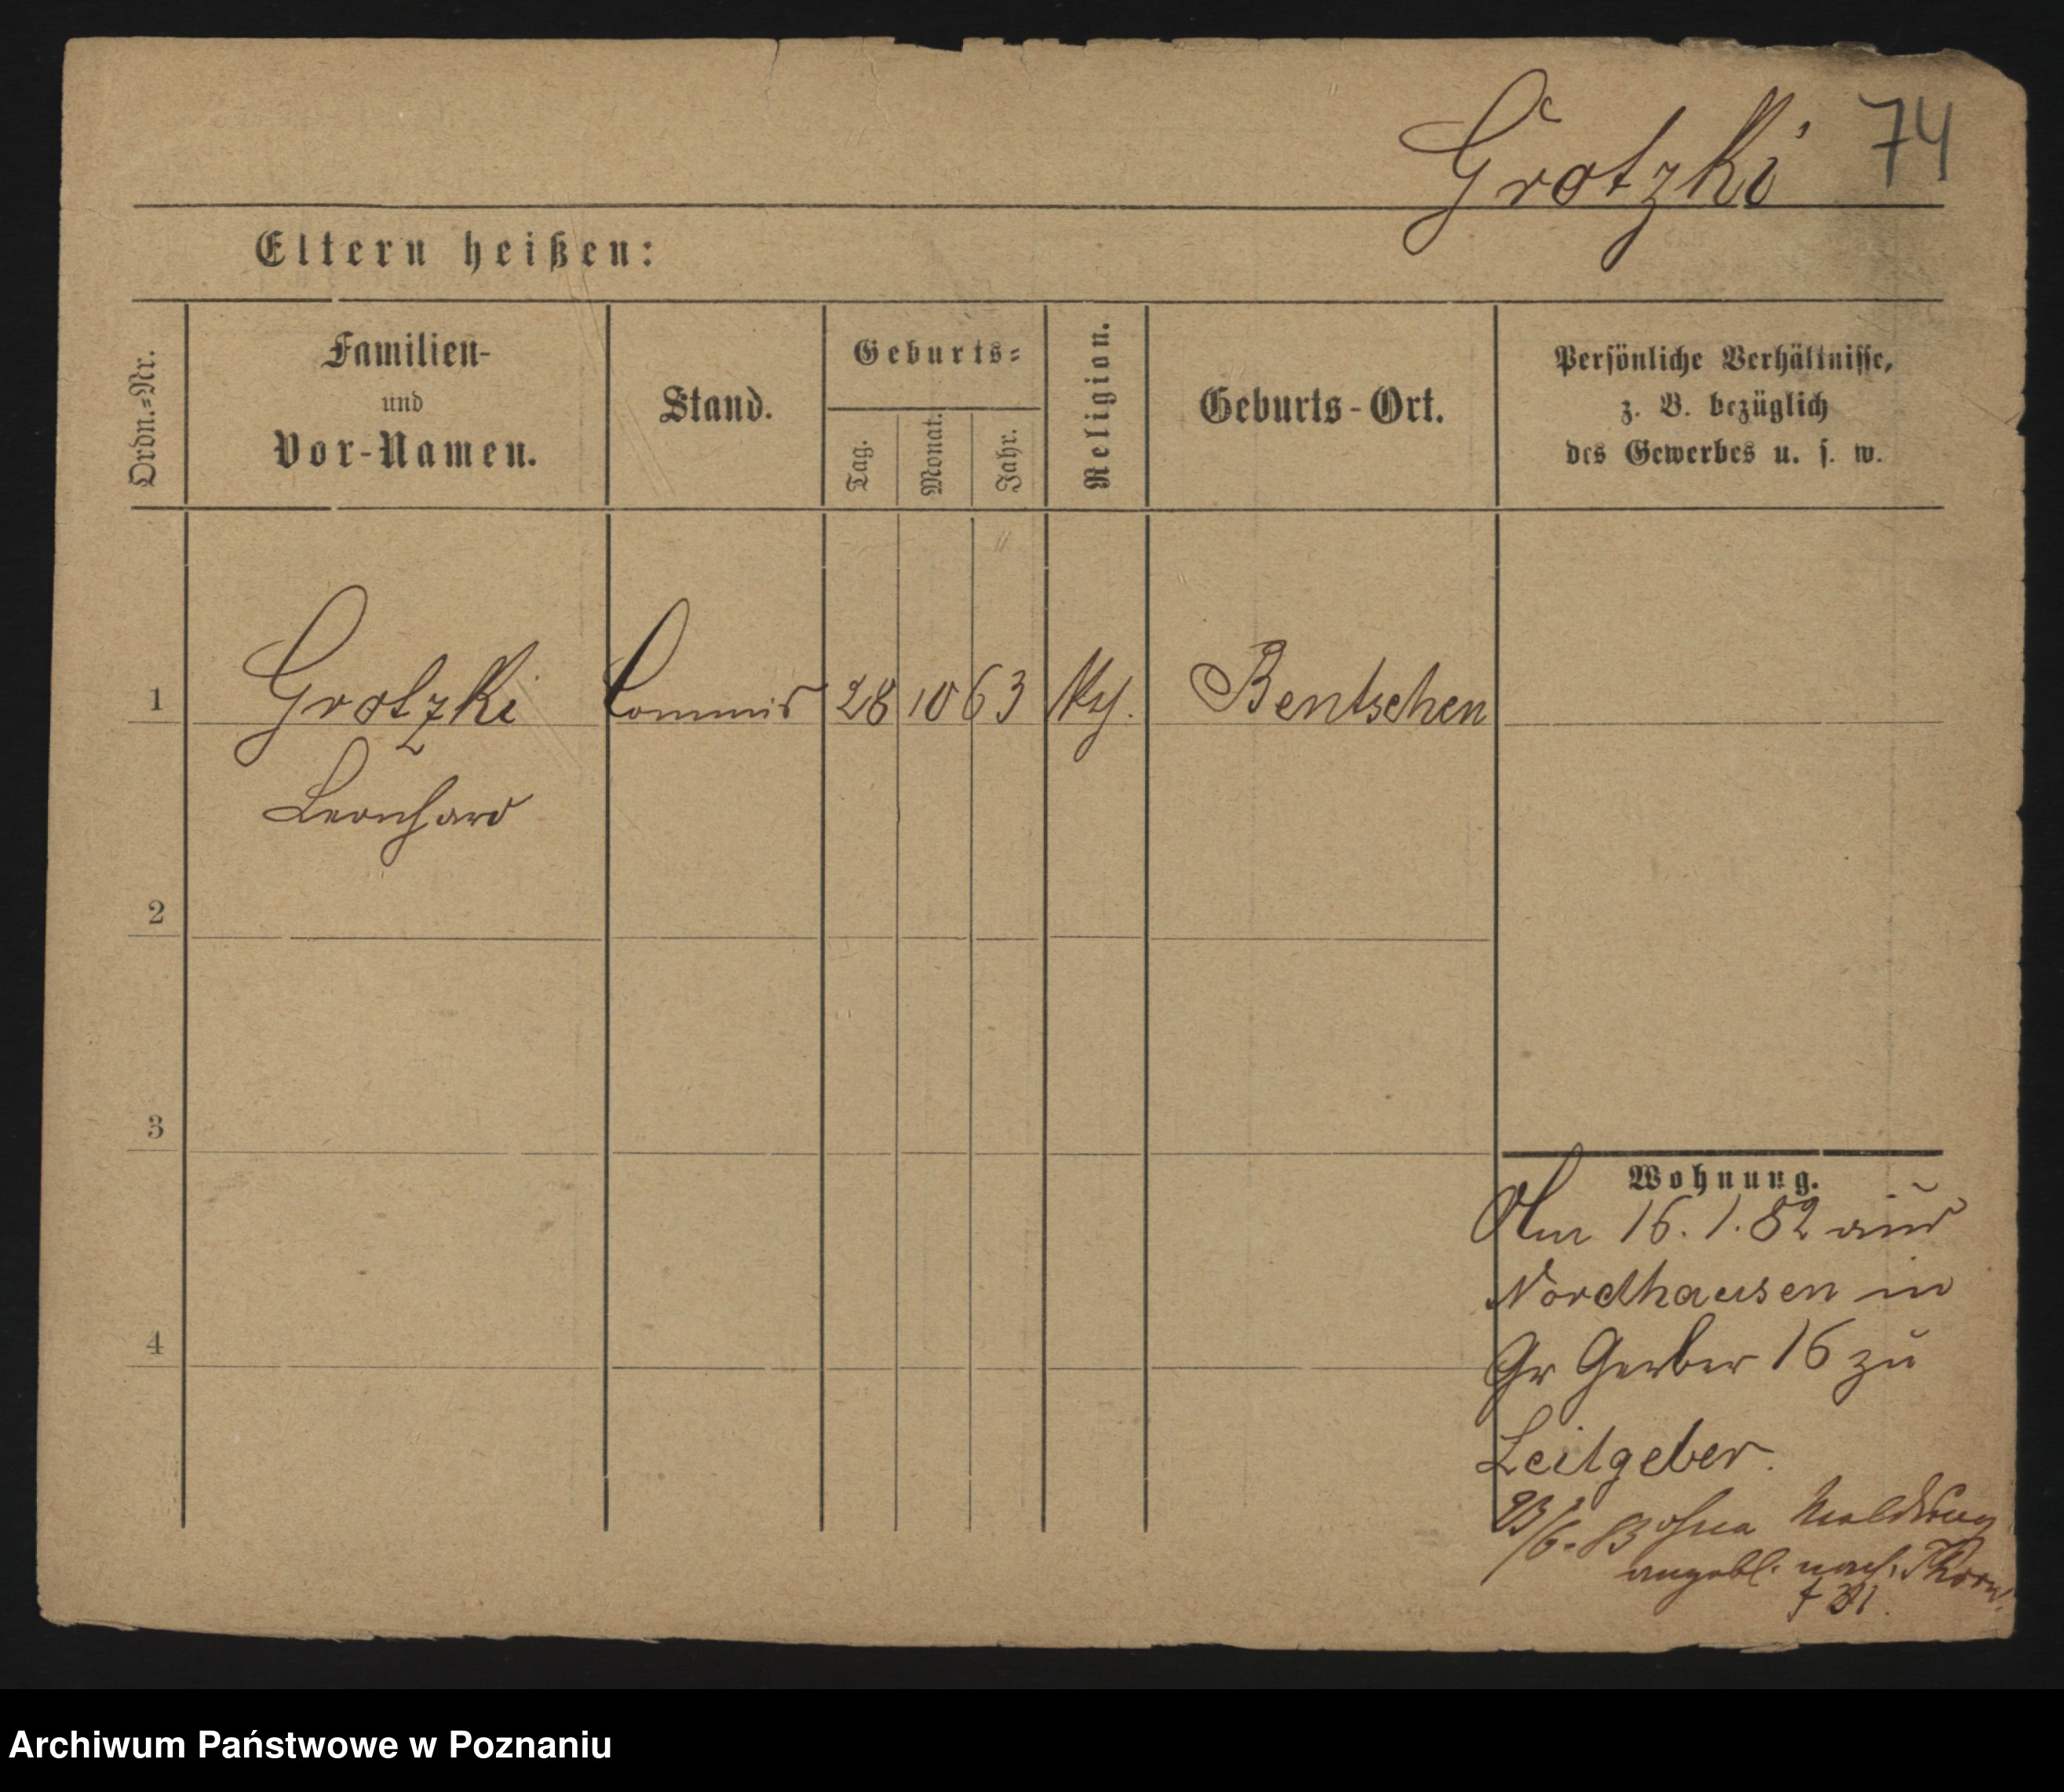 Grotzki 74
Eltern heißen:
Ordn.-Nr.
Familien-
und
Vor-Namen.
Stand.
Geburts-
Tag.
Monat.
Jahr.
Religion.
Geburts-Ort.
Persönliche Verhältnisse,
z. B. bezüglich
des Gewerbes u. s. w.
1 Grotzki Commis 28 10 63 Bentschen
Leonhard
2
3
4
Wohnung.
Am 16. 1. 82 aus
Nordhausen in
Gr Gerber 16 zu
Leitgeber.
23/6. 83 ohne Meldung
angebl. nach Thorn.
Archiwum Państwowe w Poznaniu